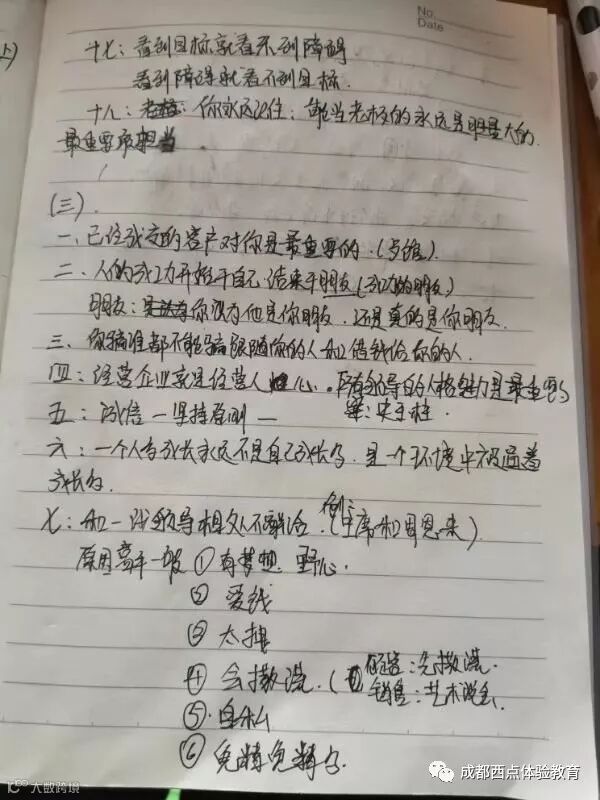 No.
Date
上)
十七：看到目标就看不到障碍
看到障碍就看不到目标.
十八：你永远记住：能当老板的永远是胆量大的.
最重要承担当.
(三).
一、已经成交的客户对你是最重要的.(与谁)
二、人的成功开始于自己结束于朋友(成功的朋友)
朋友：是你没有他是你朋友.还是真的是你朋友.
三、你骗谁都不能骗跟随你的人和借钱给你的人.
四：经营企业就是经营人心.所有领导的人格魅力是最重要的
五：诚信－坚持原则－
六：一个人的成长永远不是自己成长的.是一个环境中被逼着
成长的.
七：和一战领导相处不融洽.例：(主席和周恩来)
原因高手一般①有梦想.野心.
②爱钱
③太拽
④会撒谎.(创造：先撒谎.
销售：艺术说会.
⑤自私
⑥鬼精鬼精的.
成都西点体验教育
大数跨境